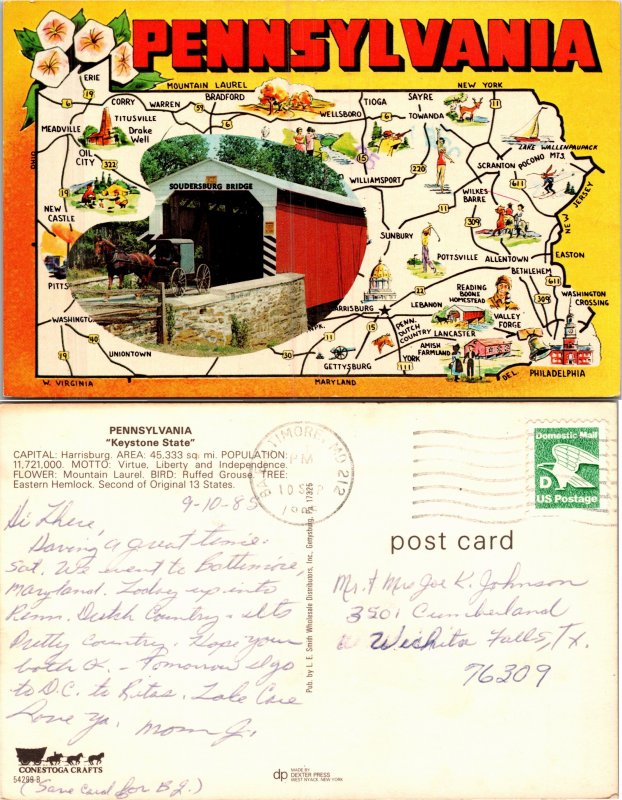 PENNSYLVANIA
MOUNTAIN LAUREL
NEW YORK
ERIE
19
6
CORRY
WARREN
59
BRADFORD
6
WELLSBORO
TIOGA
SAYRE
TOWANDA
11
LAKE WALLENPAUPACK
MEADVILLE
TITUSVILLE
Drake
Well
OHIO
OIL
CITY
322
15
WILLIAMSPORT
220
SCRANTON
POCONO MTS.
611
19
NEW
CASTLE
SOUDERSBURG BRIDGE
11
WILKES
BARRE
309
NEW JERSEY
SUNBURY
POTTSVILLE
ALLENTOWN
EASTON
BETHLEHEM
611
PITTS
HARRISBURG
22
LEBANON
READING
BOONE
HOMESTEAD
309
WASHINGTON
CROSSING
WASHINGT
40
19
UNIONTOWN
30
11
15
PENN.
DUTCH
COUNTRY
LANCASTER
VALLEY
FORGE
GETTYSBURG
YORK
111
AMISH
FARMLAND
PHILADELPHIA
W. VIRGINIA
MARYLAND
DEL.
PENNSYLVANIA
"Keystone State"
CAPITAL: Harrisburg. AREA: 45,333 sq. mi. POPULATION:
11,721,000. MOTTO: Virtue, Liberty and Independence.
FLOWER: Mountain Laurel. BIRD: Ruffed Grouse. TREE:
Eastern Hemlock. Second of Original 13 States.
BALTIMORE, MD 212
PM
10 SEP
9-10-85
Hi There,
Having a great time.
Sat. We went to Baltimore,
Maryland. Today up into
Penn. Dutch Country - its
Pretty Country. Hope your
both O.K. - Tomorrow I go
to D.C. to Ritas. Take Care
Love Ya, Mom J.
(Save Card for B.J.)
CONESTOGA CRAFTS
54299-B
Pub. by L. E. Smith Wholesale Distributors, Inc. Gettysburg, Pa. 17325
dp
MADE BY
DEXTER PRESS
WEST NYACK, NEW YORK
Domestic Mail
D
US Postage
post card
Mr. & Mrs Joe K. Johnson
3501 Cumberland
Wichita Falls, Tx.
76309